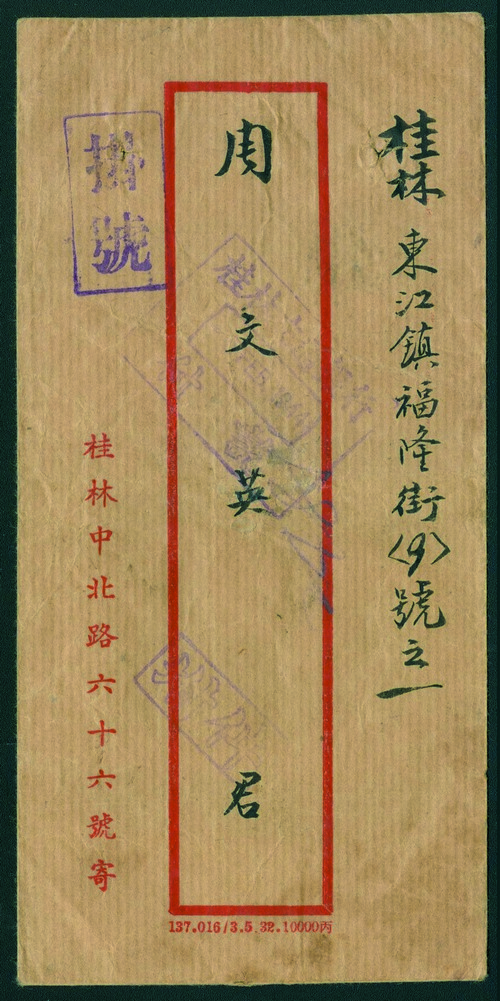 桂林東江鎮福隆街〈9〉號之一
周文英君
掛號
桂林中北路六十六號寄
137.016/3.5.32.10000丙